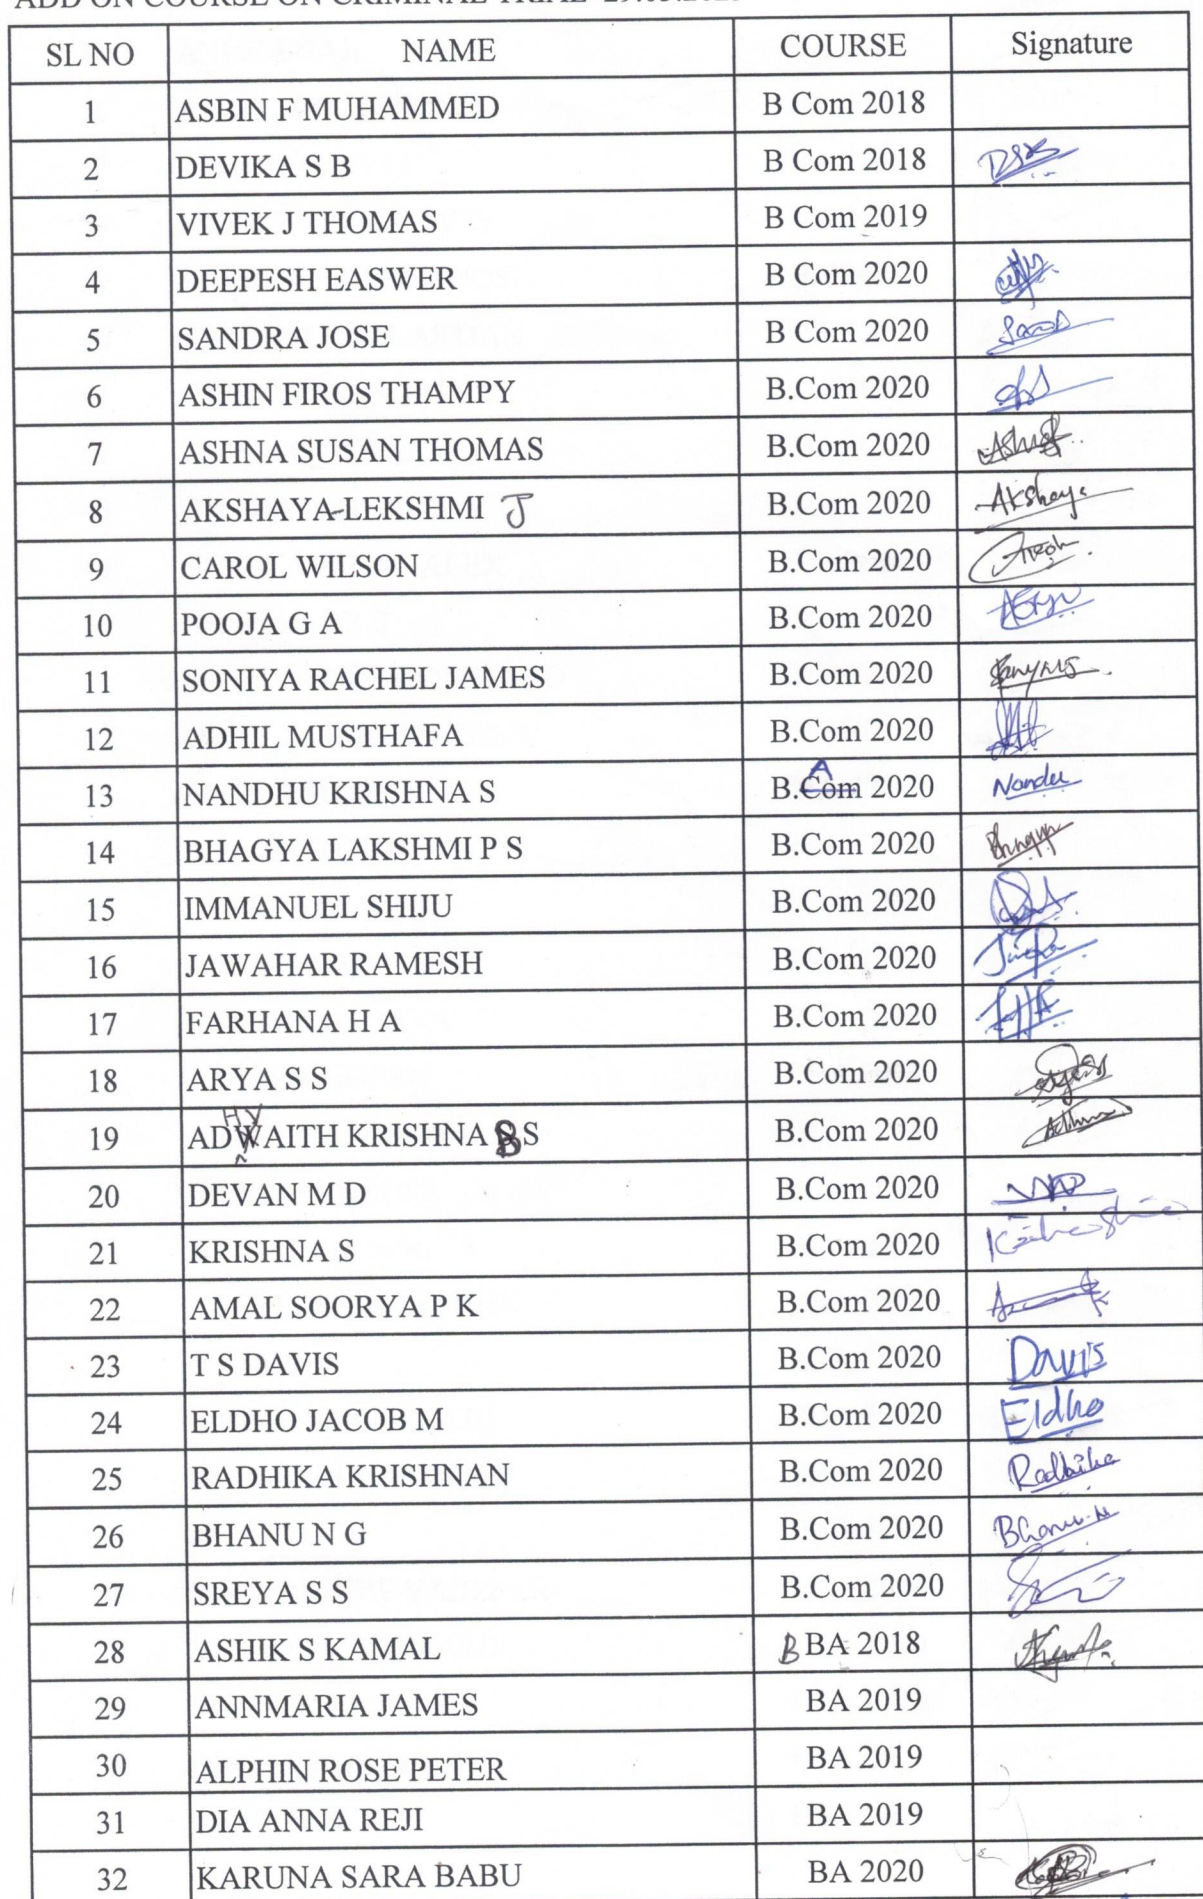 ADD ON COURSE ON CRIMINAL TRIAL
SL NO NAME COURSE Signature
1 ASBIN F MUHAMMED B Com 2018
2 DEVIKA S B B Com 2018 DSB
3 VIVEK J THOMAS B Com 2019
4 DEEPESH EASWER B Com 2020
5 SANDRA JOSE B Com 2020
6 ASHIN FIROS THAMPY B.Com 2020
7 ASHNA SUSAN THOMAS B.Com 2020
8 AKSHAYA LEKSHMI J B.Com 2020 Akshaya
9 CAROL WILSON B.Com 2020
10 POOJA G A B.Com 2020
11 SONIYA RACHEL JAMES B.Com 2020
12 ADHIL MUSTHAFA B.Com 2020
13 NANDHU KRISHNA S B.A 2020 Nandu
14 BHAGYA LAKSHMI P S B.Com 2020 Bhagya
15 IMMANUEL SHIJU B.Com 2020
16 JAWAHAR RAMESH B.Com 2020
17 FARHANA H A B.Com 2020
18 ARYA S S B.Com 2020
19 ADHYAITH KRISHNA B S B.Com 2020
20 DEVAN M D B.Com 2020
21 KRISHNA S B.Com 2020
22 AMAL SOORYA P K B.Com 2020
23 T S DAVIS B.Com 2020 DAVIS
24 ELDHO JACOB M B.Com 2020 Eldho
25 RADHIKA KRISHNAN B.Com 2020 Radhika
26 BHANU N G B.Com 2020 Bhanu.N
27 SREYA S S B.Com 2020
28 ASHIK S KAMAL B BA 2018
29 ANNMARIA JAMES BA 2019
30 ALPHIN ROSE PETER BA 2019
31 DIA ANNA REJI BA 2019
32 KARUNA SARA BABU BA 2020